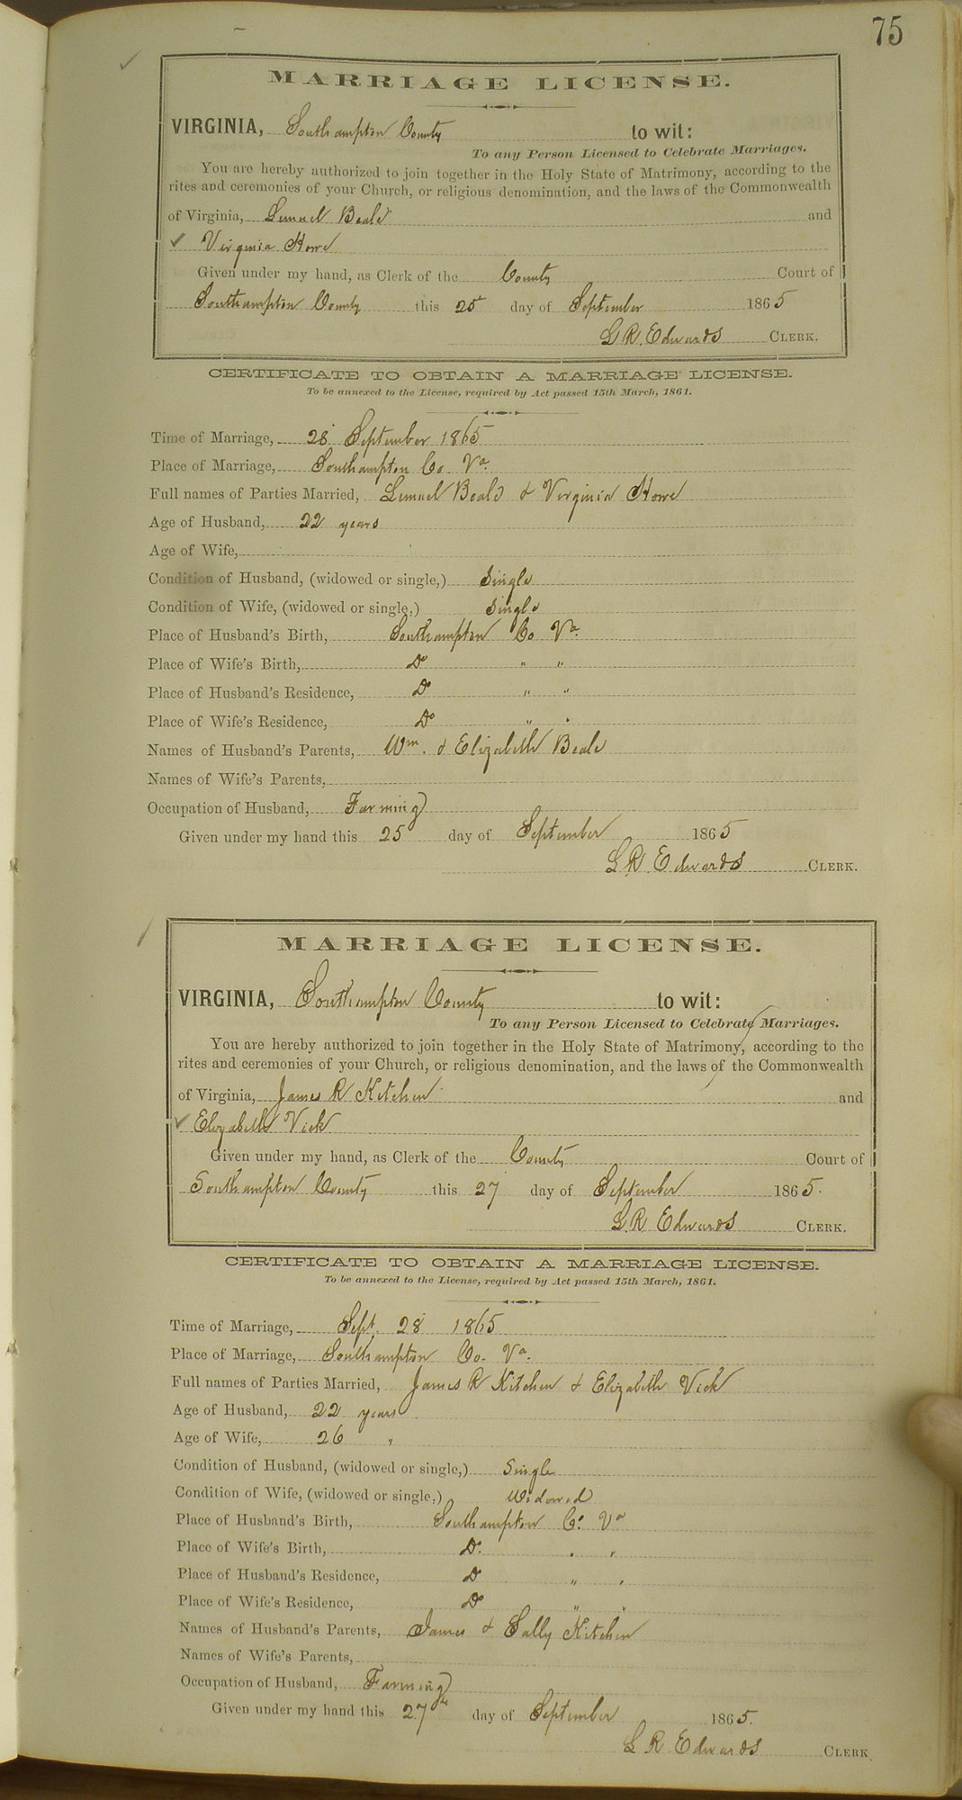 75
MARRIAGE LICENSE.
VIRGINIA, Southampton County to wit:
To any Person Licensed to Celebrate Marriages.
You are hereby authorized to join together in the Holy State of Matrimony, according to the
rites and ceremonies of your Church, or religious denomination, and the laws of the Commonwealth
of Virginia, Lemuel Beale and
Virginia Howe
Given under my hand, as Clerk of the County Court of
Southampton County this 25 day of September 1865
L R. Edwards CLERK.
CERTIFICATE TO OBTAIN A MARRIAGE LICENSE.
To be annexed to the License, required by Act passed 15th March, 1861.
Time of Marriage, 28 September 1865
Place of Marriage, Southampton Co. Va.
Full names of Parties Married, Lemuel Beale & Virginia Howe
Age of Husband, 22 years
Age of Wife,
Condition of Husband, (widowed or single,) Single
Condition of Wife, (widowed or single,) Single
Place of Husband's Birth, Southampton Co Va.
Place of Wife's Birth, Do " "
Place of Husband's Residence, Do " "
Place of Wife's Residence, Do " "
Names of Husband's Parents, Wm. & Elizabeth Beale
Names of Wife's Parents,
Occupation of Husband, Farming
Given under my hand this 25 day of September 1865
L R. Edwards CLERK.
MARRIAGE LICENSE.
VIRGINIA, Southampton County to wit:
To any Person Licensed to Celebrate Marriages.
You are hereby authorized to join together in the Holy State of Matrimony, according to the
rites and ceremonies of your Church, or religious denomination, and the laws of the Commonwealth
of Virginia, James R Kitchen and
Elizabeth Vick
Given under my hand, as Clerk of the County Court of
Southampton County this 27 day of September 1865.
L.R Edwards CLERK.
CERTIFICATE TO OBTAIN A MARRIAGE LICENSE.
To be annexed to the License, required by Act passed 15th March, 1861.
Time of Marriage, Sept. 28 1865
Place of Marriage, Southampton Co. Va.
Full names of Parties Married, James R Kitchen & Elizabeth Vick
Age of Husband, 22 years
Age of Wife, 26 "
Condition of Husband, (widowed or single,) Single
Condition of Wife, (widowed or single,) Widowed
Place of Husband's Birth, Southampton Co Va
Place of Wife's Birth, Do. " "
Place of Husband's Residence, Do " "
Place of Wife's Residence, Do " "
Names of Husband's Parents, James & Sally Kitchen
Names of Wife's Parents,
Occupation of Husband, Farming
Given under my hand this 27th day of September 1865.
L R Edwards CLERK